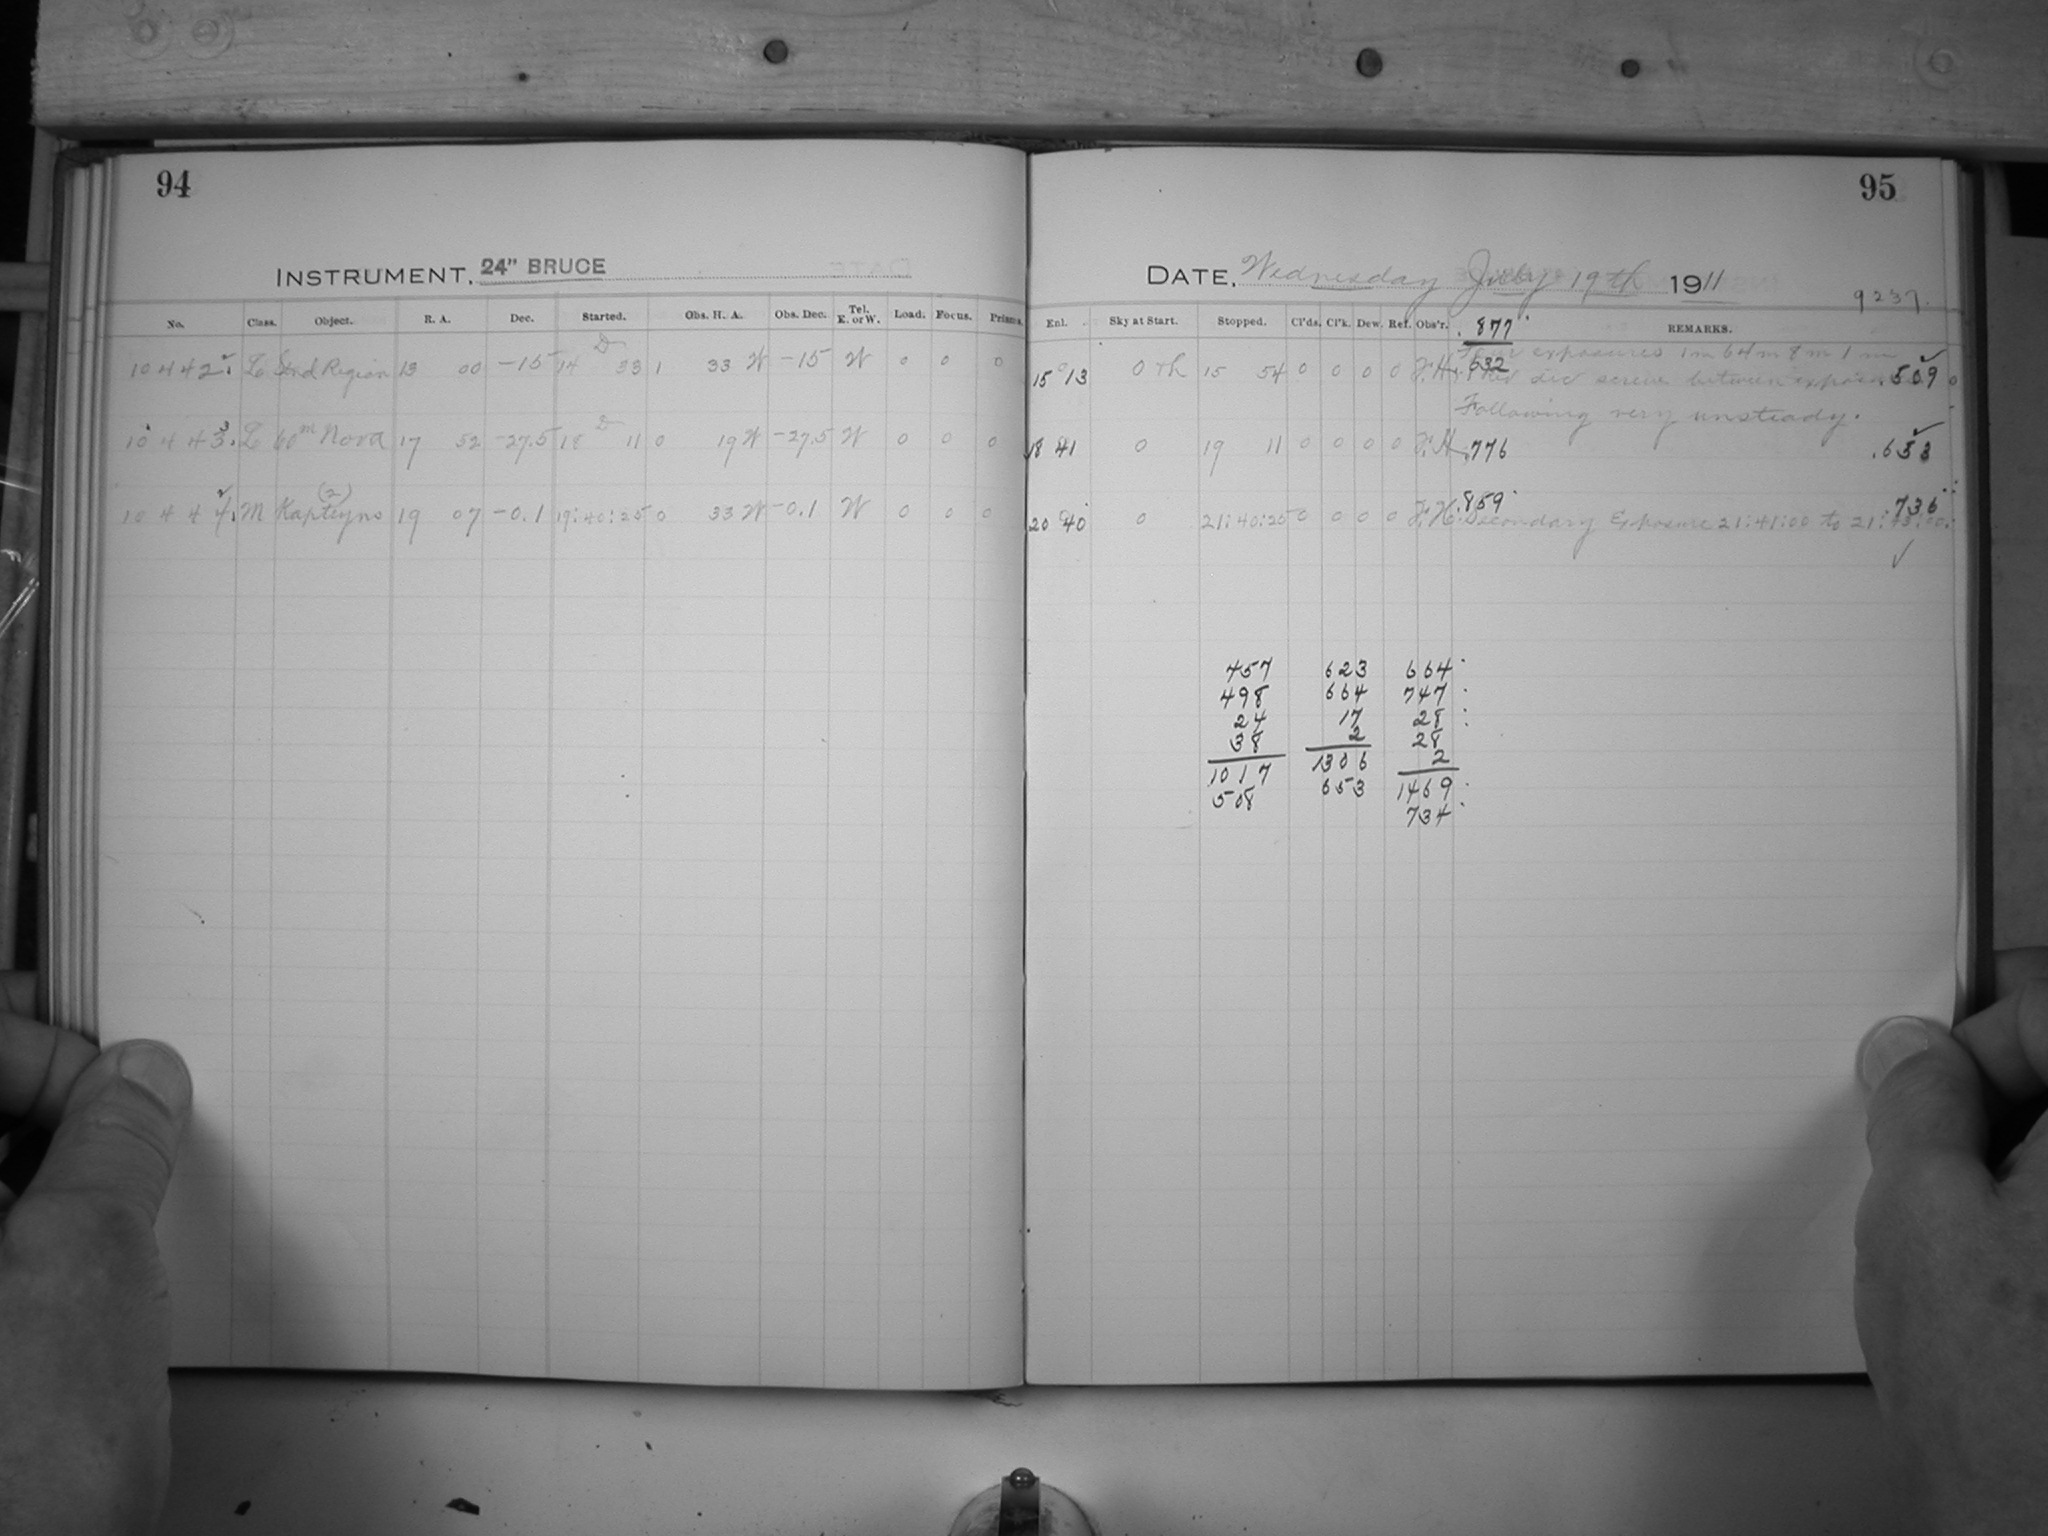 94
INSTRUMENT, 24" BRUCE
No. Class. Object. R. A. Dec. Started. Obs. H. A. Obs. Dec. Tel. E. or W. Load. Focus. Prisms
10442. L Stnd Region 13 00 -15 14 33 1 33 W -15 W 0 0 0
10443. L 60m Nova 17 52 -27.5 18 11 0 19 W -27.5 W 0 0 0
(2)
10444. M Kapteyns 19 07 -0.1 19:40:25 0 33 W -0.1 W 0 0 0
95
DATE, Wednesday July 19th 1911
9237.
Enl. Sky at Start. Stopped. Cl'ds. Cl'k. Dew. Ref. Obs'r. .877 REMARKS.
Four exposures 1m 64m 8m 1m
15 13 0 Th 15 54 0 0 0 0 F.H. .632 dec screw between .509
Following very unsteady.
18 41 0 19 11 0 0 0 0 F.H. .776 .653
20 40 0 21:40:25 0 0 0 0 F.H. .859 .736
Secondary Exposure 21:41:00 to 21:43:00.
457 623 664
498 664 747
24 17 28
38 2 28
2
1017 1306 1469
508 653 734